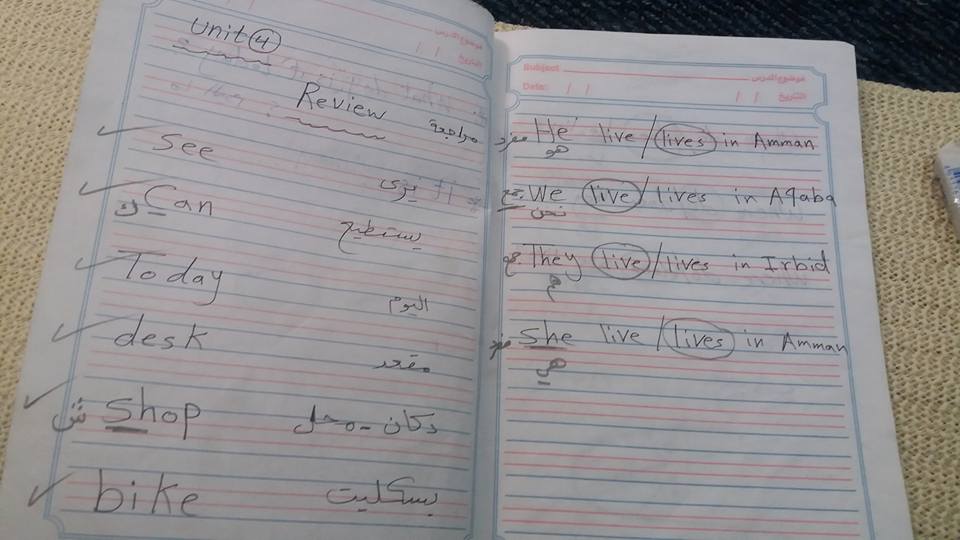 Unit 4
Review مراجعة
See يرى
Can ك يستطيع
Today اليوم
desk مقعد
shop ش دكان - محل
bike بسكليت
Subject: موضوع الدرس
Date: / / / / التاريخ
مفرد He live / lives in Amman
هو
جمع We live / lives in Aqaba
نحن
They live / lives in Irbid
هم
مفرد she live / lives in Amman
هي